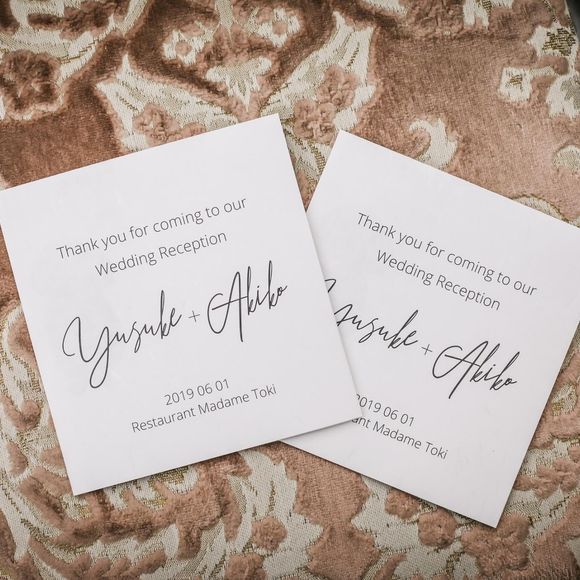 Thank you for coming to our
Wedding Reception
Yusuke + Akiko
2019 06 01
Restaurant Madame Toki
Thank you for coming to our
Wedding Reception
Yusuke + Akiko
2019 06 01
Restaurant Madame Toki